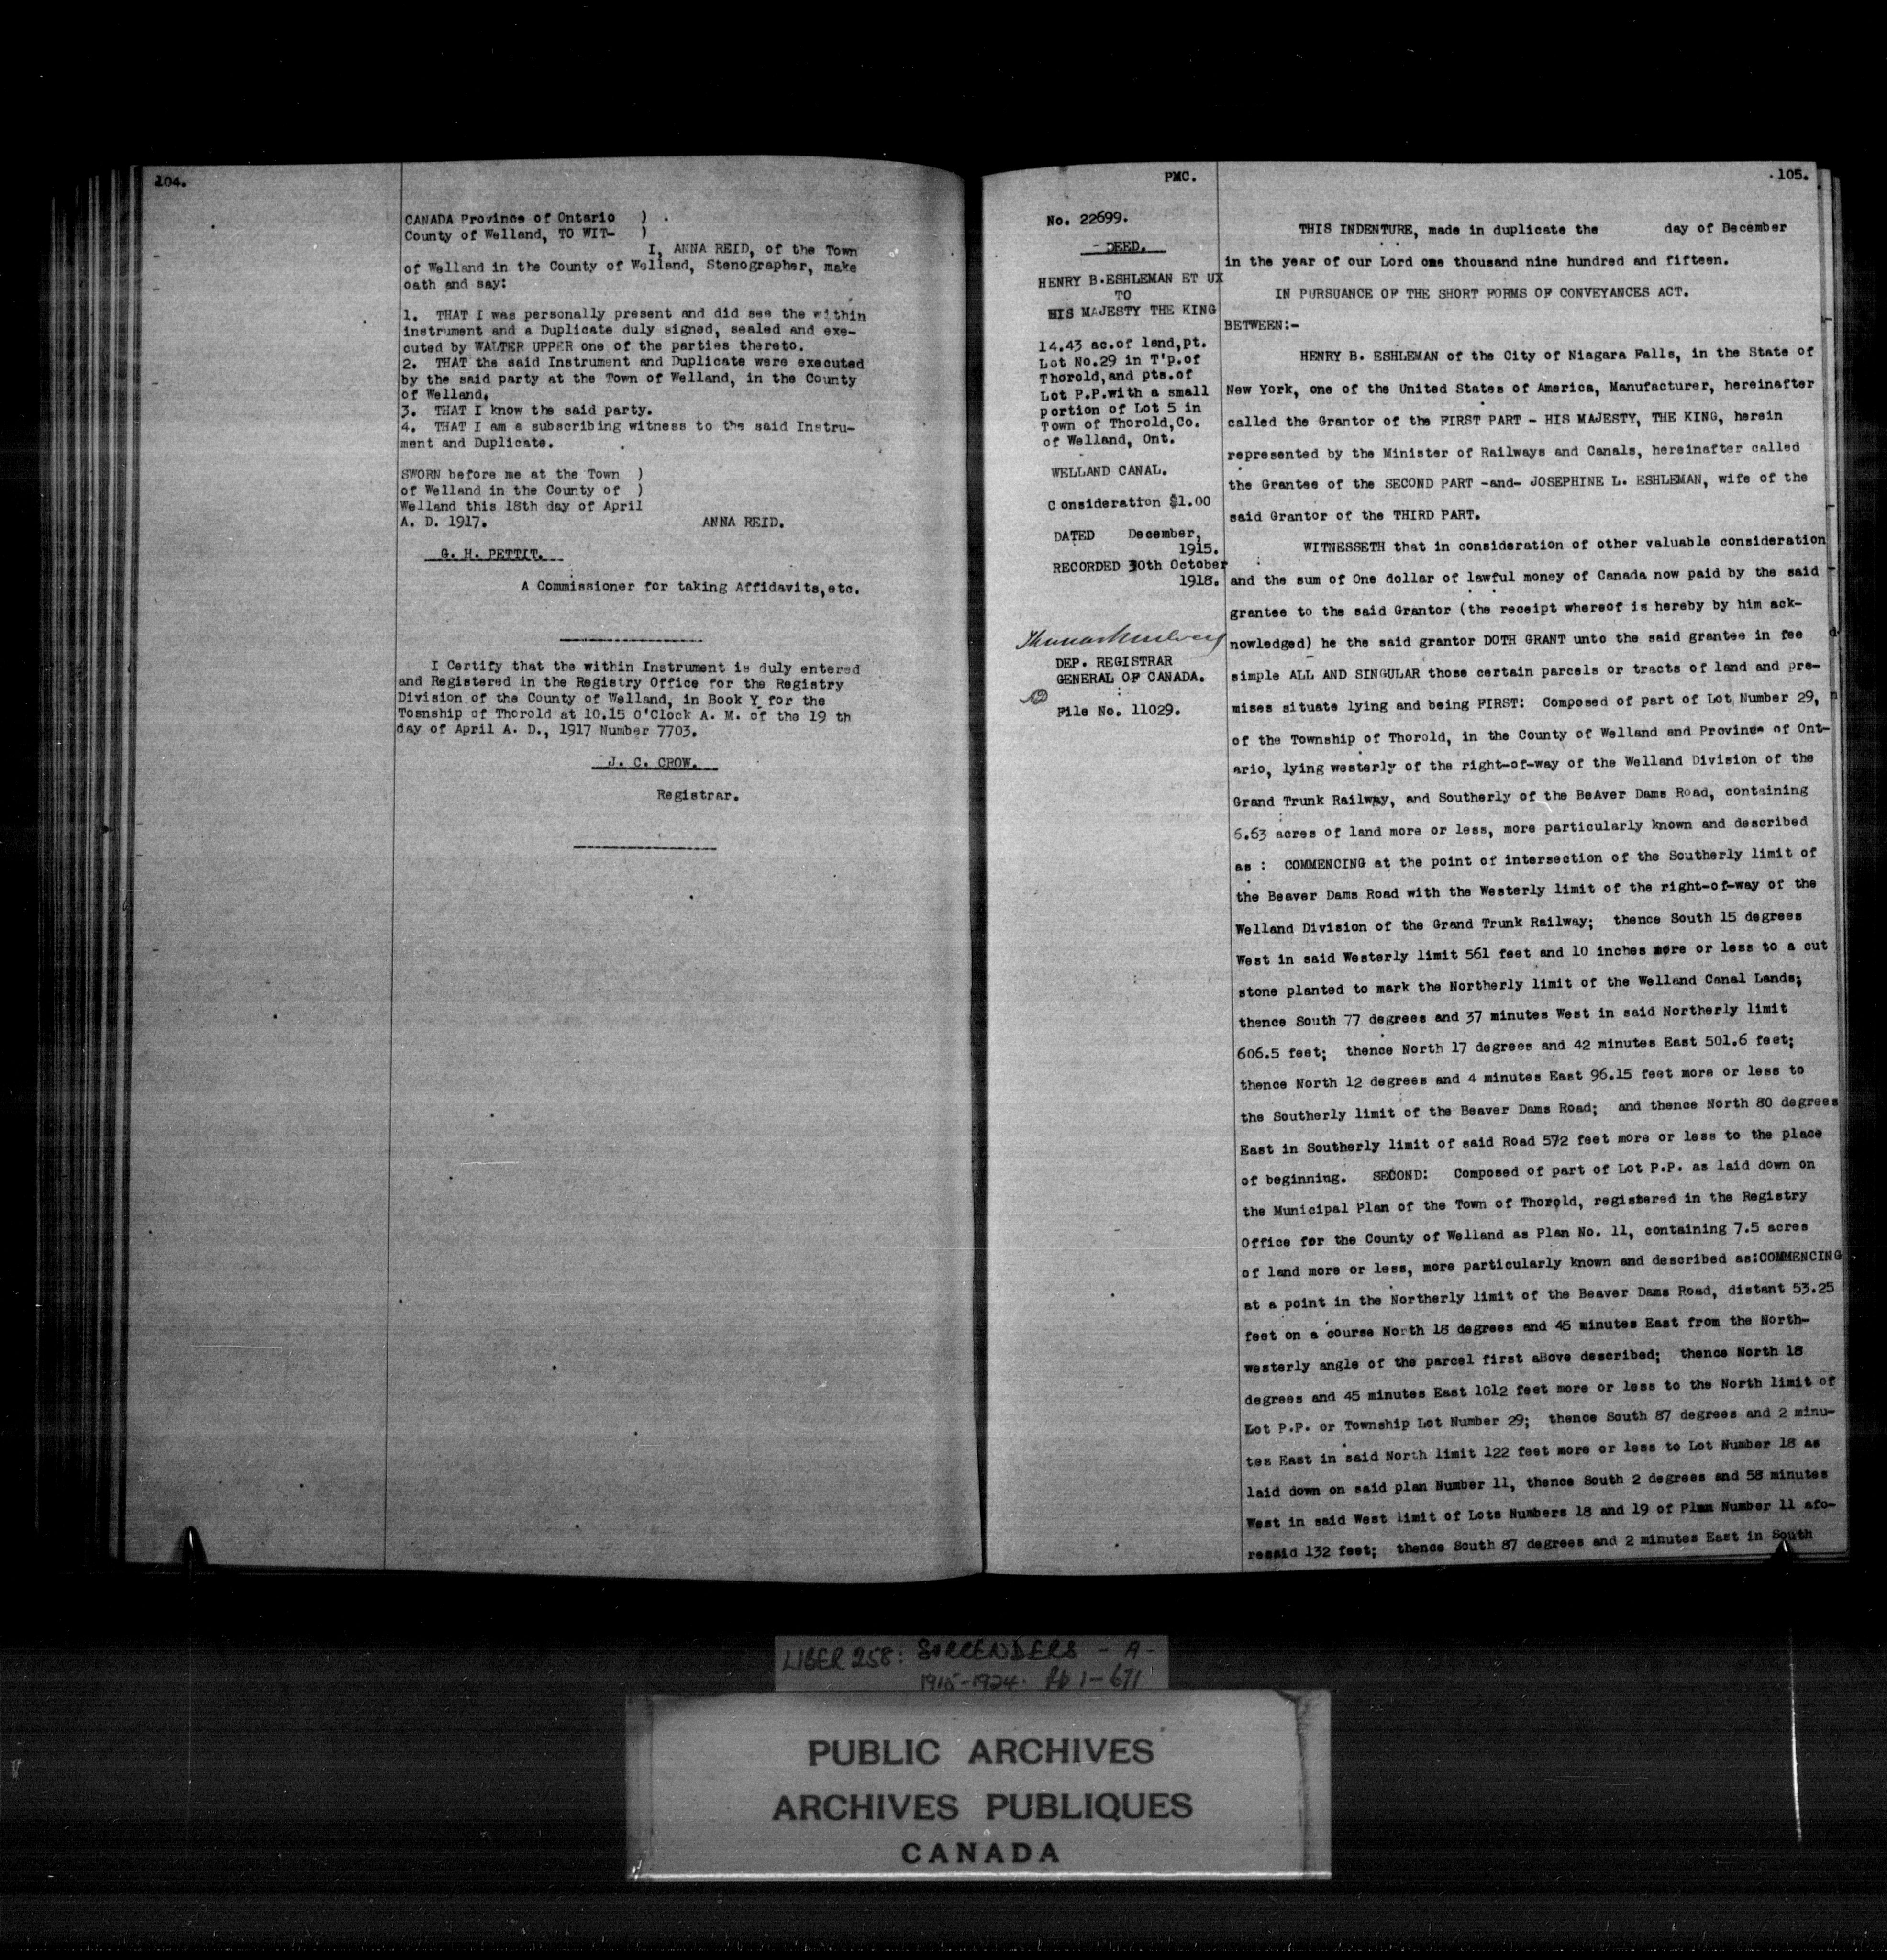 104.
CANADA Province of Ontario )
County of Welland, TO WIT- )
I, ANNA REID, of the Town
of Welland in the County of Welland, Stenographer, make
oath and say:
1. THAT I was personally present and did see the within
instrument and a Duplicate duly signed, sealed and exe-
cuted by WALTER UPPER one of the parties thereto.
2. THAT the said Instrument and Duplicate were executed
by the said party at the Town of Welland, in the County
of Welland.
3. THAT I know the said party.
4. THAT I am a subscribing witness to the said Instru-
ment and Duplicate.
SWORN before me at the Town )
of Welland in the County of )
Welland this 18th day of April
A. D. 1917. ANNA REID.
G. H. PETTIT.
A Commissioner for taking Affidavits,etc.
I Certify that the within Instrument is duly entered
and Registered in the Registry Office for the Registry
Division of the County of Welland, in Book Y for the
Tosnship of Thorold at 10.15 O'Clock A. M. of the 19 th
day of April A. D., 1917 Number 7703.
J. C. CROW.
Registrar.
PMC.
No. 22699.
DEED.
HENRY B.ESHLEMAN ET UX
TO
HIS MAJESTY THE KING
14.43 ac.of land,pt.
Lot No.29 in T'p.of
Thorold,and pts.of
Lot P.P.with a small
portion of Lot 5 in
Town of Thorold,Co.
of Welland, Ont.
WELLAND CANAL.
Consideration $1.00
DATED December,
1915.
RECORDED 30th October
1918.
DEP. REGISTRAR
GENERAL OF CANADA.
File No. 11029.
105.
THIS INDENTURE, made in duplicate the day of December
in the year of our Lord one thousand nine hundred and fifteen.
IN PURSUANCE OF THE SHORT FORMS OF CONVEYANCES ACT.
BETWEEN:-
HENRY B. ESHLEMAN of the City of Niagara Falls, in the State of
New York, one of the United States of America, Manufacturer, hereinafter
called the Grantor of the FIRST PART - HIS MAJESTY, THE KING, herein
represented by the Minister of Railways and Canals, hereinafter called
the Grantee of the SECOND PART -and- JOSEPHINE L. ESHLEMAN, wife of the
said Grantor of the THIRD PART.
WITNESSETH that in consideration of other valuable consideration
and the sum of One dollar of lawful money of Canada now paid by the said
grantee to the said Grantor (the receipt whereof is hereby by him ack-
nowledged) he the said grantor DOTH GRANT unto the said grantee in fee
simple ALL AND SINGULAR those certain parcels or tracts of land and pre-
mises situate lying and being FIRST: Composed of part of Lot Number 29,
of the Township of Thorold, in the County of Welland and Province of Ont-
ario, lying westerly of the right-of-way of the Welland Division of the
Grand Trunk Railway, and Southerly of the BeAver Dams Road, containing
6.63 acres of land more or less, more particularly known and described
as : COMMENCING at the point of intersection of the Southerly limit of
the Beaver Dams Road with the Westerly limit of the right-of-way of the
Welland Division of the Grand Trunk Railway; thence South 15 degrees
West in said Westerly limit 561 feet and 10 inches more or less to a cut
stone planted to mark the Northerly limit of the Welland Canal Lands;
thence South 77 degrees and 37 minutes West in said Northerly limit
606.5 feet; thence North 17 degrees and 42 minutes East 501.6 feet;
thence North 12 degrees and 4 minutes East 96.15 feet more or less to
the Southerly limit of the Beaver Dams Road; and thence North 80 degrees
East in Southerly limit of said Road 572 feet more or less to the place
of beginning. SECOND: Composed of part of Lot P.P. as laid down on
the Municipal Plan of the Town of Thorold, registered in the Registry
Office for the County of Welland as Plan No. 11, containing 7.5 acres
of land more or less, more particularly known and described as:COMMENCING
at a point in the Northerly limit of the Beaver Dams Road, distant 53.25
feet on a course North 18 degrees and 45 minutes East from the North-
westerly angle of the parcel first aBove described; thence North 18
degrees and 45 minutes East 1012 feet more or less to the North limit of
Lot P.P. or Township Lot Number 29; thence South 87 degrees and 2 minu-
tes East in said North limit 122 feet more or less to Lot Number 18 as
laid down on said plan Number 11, thence South 2 degrees and 58 minutes
West in said West limit of Lots Numbers 18 and 19 of Plan Number 11 afo-
resaid 132 feet; thence South 87 degrees and 2 minutes East in South
LIBER 258: SURRENDERS - A -
1915-1924. pp 1-671
PUBLIC ARCHIVES
ARCHIVES PUBLIQUES
CANADA